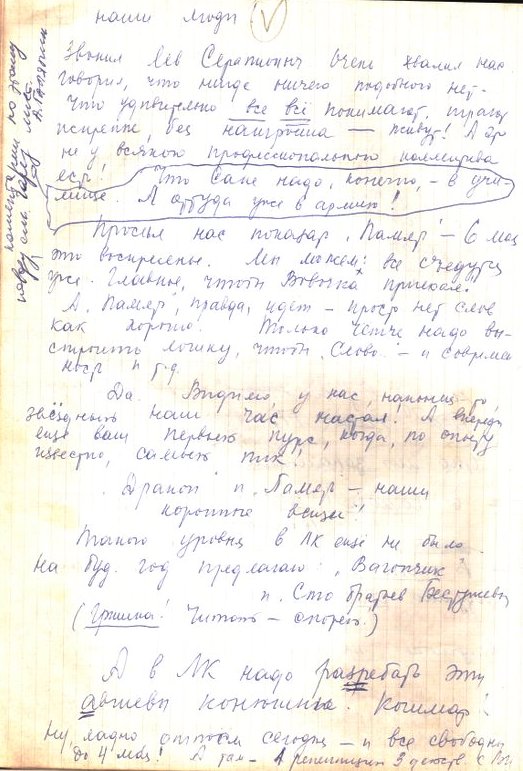 наши люди V
Звонил Лев Серапионыч Очень хвалил нас
говорил, что нигде ничего подобного нет.
Что удивительно все всё понимают, играют
искренне, без наигрыша — живут! А это
не у всякого профессионального коллектива
есть! Что Сане надо, конечно, – в учи-
лище. А оттуда уже в армию!
Просил нас показать „Память" – 6 мая
это воскресенье. Мы можем: все съедутся
уже. Главное, чтоб Вовочка приехал!
А „Память", правда, идет – просто нет слов
как хорошо! Только четче надо вы-
строить логику, чтоб „Слово" – и совреме
ность и т.д.
Да. Видимо, у нас, наконец-то,
звёздный наш час настал! А впереди
ещё ваш первый курс, когда, по опыту
известно, самый пик,
„Дракон" и „Память" – наши
коронные вещи"!
Такого уровня в ЛК ещё не было
На буд. год предлагаю: „Вагончик"
и „Сто братьев Бестужевых"
(Гришина! Читать – огорею.)
А в ЛК надо разгребать эти
авгиевы конюшни. Кошмар!
Ну ладно, сегодня – и все свободны
до 4 мая! А там – 1 репетиция 3 действ. с